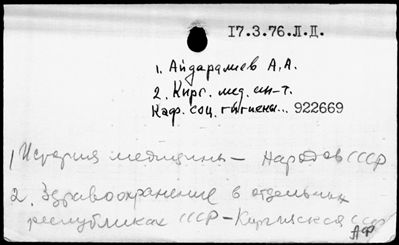 17.3.76.Л.Д.
1. Айдаралиев А,А.
2. Кирг. мед. ин-т.
Каф. соц. гигиены... 922669
1 История медицины - Народов СССР
2. Здравоохранение в отдельных
республиках СССР - Киргизская ССР
АФ